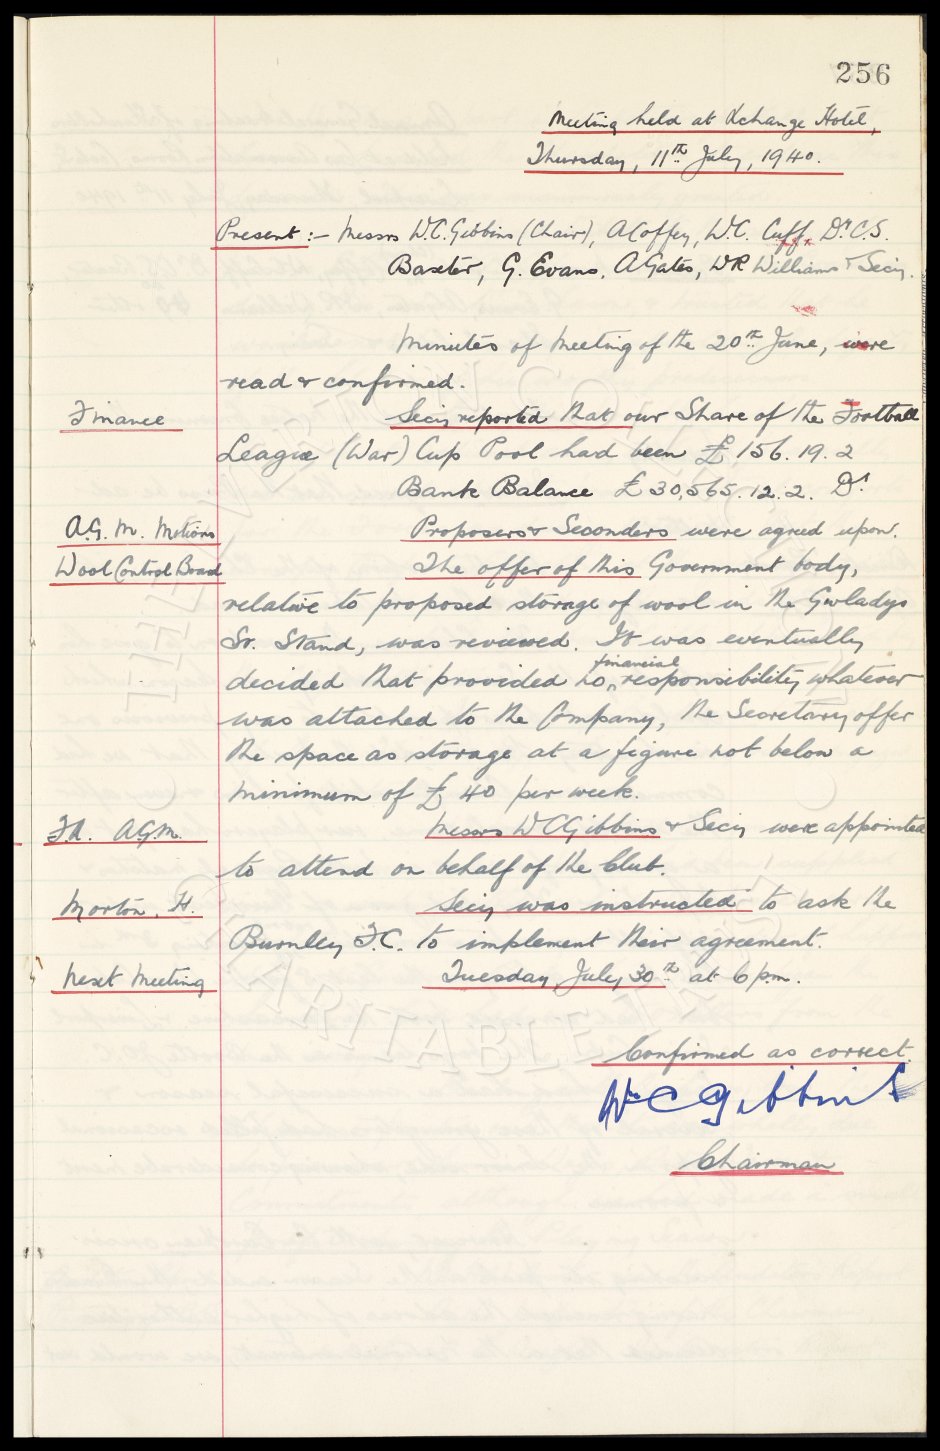 256
Meeting held at Xchange Hotel,
Thursday, 11th July, 1940.
Present :- Messrs W.C. Gibbins (Chair), A Coffey, W.C. Cuff, Dr C.S.
Baxter, G. Evans, A Gates, W R Williams & Secy.
Minutes of Meeting of the 20th June, were
read & confirmed.
Finance Secy reported that our Share of the Football
League (War) Cup Pool had been £156. 19. 2
Bank Balance £30,565. 12. 2. Dr
A.G.M. Motions Proposers & Seconders were agreed upon.
Wool Control Board The offer of this Government body,
relative to proposed storage of wool in the Gwladys
St. Stand, was reviewed. It was eventually
decided that provided no financial responsibility whatever
was attached to the Company, the Secretary offer
the space as storage at a figure not below a
minimum of £40 per week.
F.A. A.G.M. Messrs W C Gibbins & Secy were appointed
to attend on behalf of the Club.
Morton. H. Secy was instructed to ask the
Burnley F.C. to implement their agreement.
Next Meeting Tuesday July 30th at 6 p.m.
Confirmed as correct.
Wm C Gibbins
Chairman
THE EVERTON COLLECTION
CHARITABLE TRUST